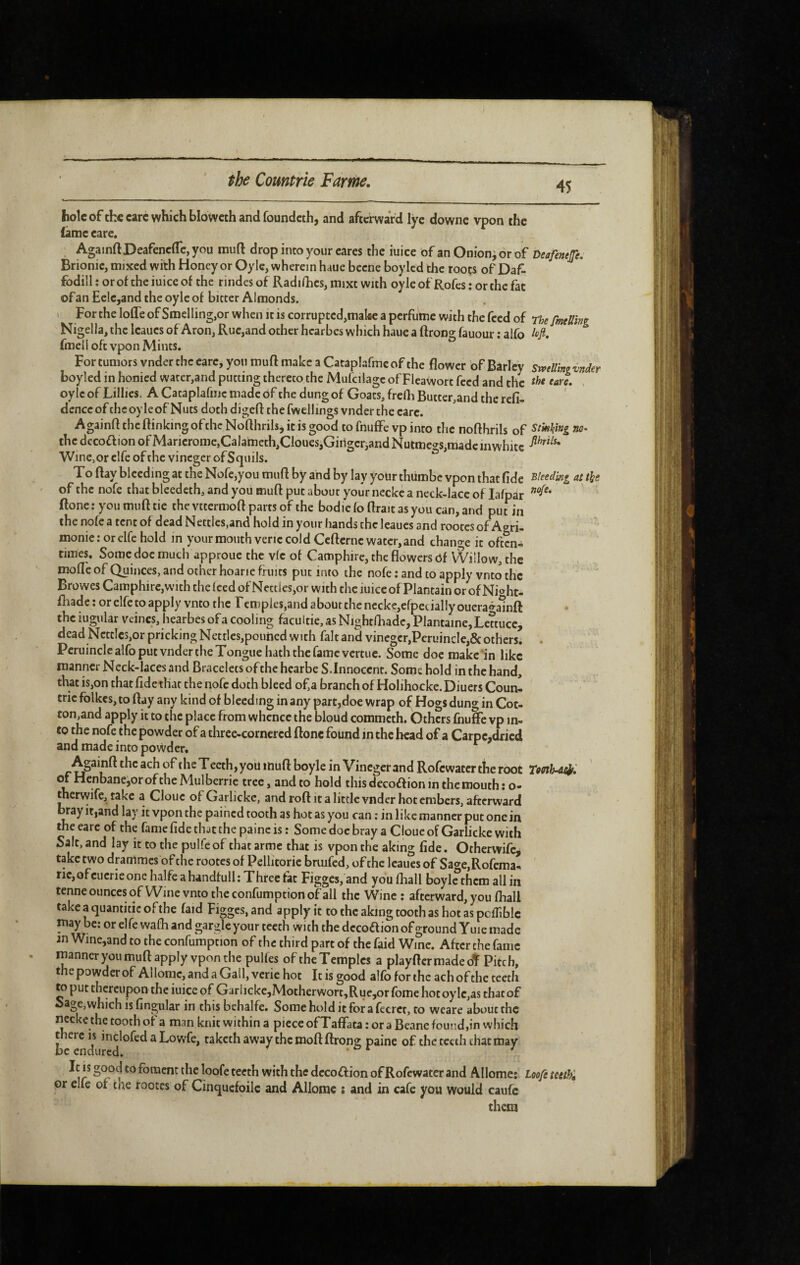 the Countrie Farme.
45
hole of the eare which bloweth and soundeth, and afterward lye downe vpon the
same eare.
Against Deafenesse, you must drop into your eares the iuice of an Onion, or of
Deafenesse.
Brionie, mixed with Honey or Oyle, wherein haue beene boyled the roots of Daf-
fodill: or of the iuice of the rindes of Radishes, mixt with oyle of Roses: or the fat
of an Eele, and the oyle of bitter Almonds.
For the losse of Smelling, or when it is corrupted, make a perfume with the seed of
The smelling
Nigella, the leaues of Aron, Rue, and other hearbes which haue a strong sauour: also
lost.
smell oft vpon Mints.
For tumors vnder the eare, you must make a Cataplasme of the flower of Barley
Swelling vnder
boyled in honied water, and putting thereto the Muscilage of Fleawort seed and the
the eare.
oyle of Lillies. A Cataplasme made of the dung of Goats, fresh Butter, and the resi-
dence of the oyle of Nuts doth digest the swellings vnder the eare.
Against the stinking of the Nosthrils, it is good to snuffe vp into the nosthrils of
Stinking no-
the decoction of Marierome, Calameth, Cloues, Ginger, and Nutmegs, made in white
sthrils.
Wine, or else of the vineger of Squils.
To stay bleeding at the Nose, you must by and by lay your thumbe vpon that side
Bleeding at the
of the nose that bleedeth, and you must put about your necke a neck-lace of Iaspar
nose.
stone: you must tie the vttermost parts of the bodie so strait as you can, and put in
the nose a tent of dead Nettles, and hold in your hands the leaues and rootes of Agri-
monie: or else hold in your mouth verie cold Cesterne water, and change it often-
times. Some doe much approue the vse of Camphire, the flowers of Willow, the
mosse of Quinces, and other hoarie fruits put into the nose: and to apply vnto the
Browes Camphire, with the seed of Nettles, or with the iuice of Plantain or of Night-
shade: or else to apply vnto the Temples, and about the necke, especially ouer against
the iugular veines, hearbes of a cooling facultie, as Nightshade, Plantaine, Lettuce,
dead Nettles, or pricking Nettles, pouned with salt and vineger, Peruincle, & others.
Peruincle also put vnder the Tongue hath the same vertue. Some doe make in like
manner Neck-laces and Bracelets of the hearbe S. Innocent. Some hold in the hand,
that is, on that side that the nose doth bleed of, a branch of Holihocke. Diuers Coun-
trie folkes, to stay any kind of bleeding in any part, doe wrap of Hogs dung in Cot-
ton, and apply it to the place from whence the bloud commeth. Others snuffe vp in-
to the nose the powder of a three-cornered stone found in the head of a Carpe, dried
and made into powder.
Against the ach of the Teeth, you must boyle in Vineger and Rosewater the root
Tooth-ach.
of Henbane, or of the Mulberrie tree, and to hold this decoction in the mouth: o-
therwise, take a Cloue of Garlicke, and rost it a little vnder hot embers, afterward
bray it, and lay it vpon the pained tooth as hot as you can: in like manner put one in
the eare of the same side that the paine is: Some doe bray a Cloue of Garlicke with
Salt, and lay it to the pulse of that arme that is vpon the aking side. Otherwise,
take two drammes of the rootes of Pellitorie bruised, of the leaues of Sage, Rosema-
rie, of euerie one halfe a handfull: Three fat Figges, and you shall boyle them all in
tenne ounces of Wine vnto the consumption of all the Wine: afterward, you shall
take a quantitie of the said Figges, and apply it to the aking tooth as hot as possible
may be: or else wash and gargle your teeth with the decoction of ground Yuie made
in Wine, and to the consumption of the third part of the said Wine. After the same
manner you must apply vpon the pulses of the Temples a playster made of Pitch,
the powder of Allome, and a Gall, verie hot It is good also for the ach of the teeth
to put thereupon the iuice of Garlicke, Motherwort, Rue, or some hot oyle, as that of
Sage, which is singular in this behalfe. Some hold it for a secret, to weare about the
necke the tooth of a man knit within a piece of Taffata: or a Beane found, in which
there is inclosed a Lowse, taketh away the most strong paine of the teeth that may
be endured.
It is good to foment the loose teeth with the decoction of Rosewater and Allome:
Loose teeth.
or else of the rootes of Cinquefoile and Allome: and in case you would cause
them